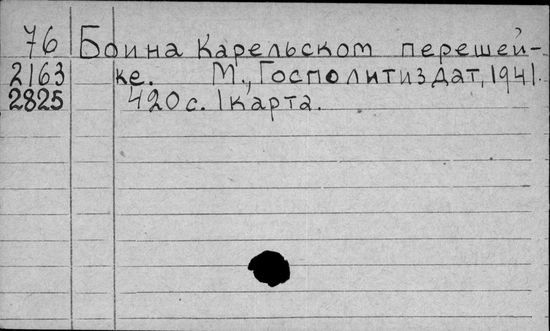 76 Бои на Карельском перешей-
2163 ке. М., Госполитиздат, 1941.
2825 420 с. 1 карта.